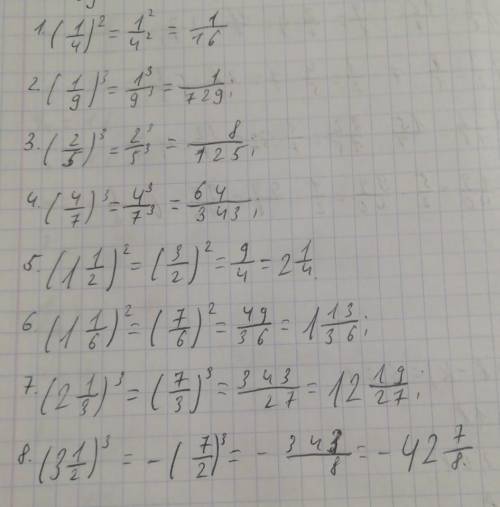 1. (1/4)² = 1²/4² = 1/16
2. (1/9)³ = 1³/9³ = 1/729;
3. (2/5)³ = 2³/5³ = 8/125;
4. (4/7)³ = 4³/7³ = 64/343;
5. (1 1/2)² = (3/2)² = 9/4 = 2 1/4.
6 (1 1/6)² = (7/6)² = 49/36 = 1 13/36;
7. (2 1/3)³ = (7/3)³ = 343/27 = 12 19/27;
8. (3 1/2)³ = -(7/2)³ = - 343/8 = - 42 7/8.